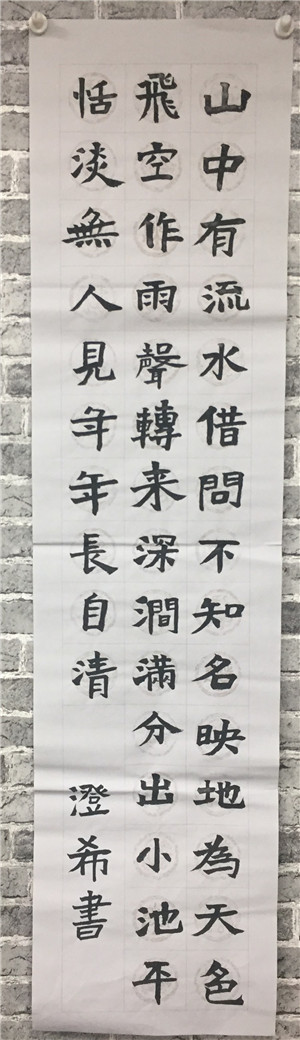 山中有流水借問不知名映地為天色
飛空作雨聲轉来深澗滿分出小池平
恬淡無人見年年長自清
澄希書